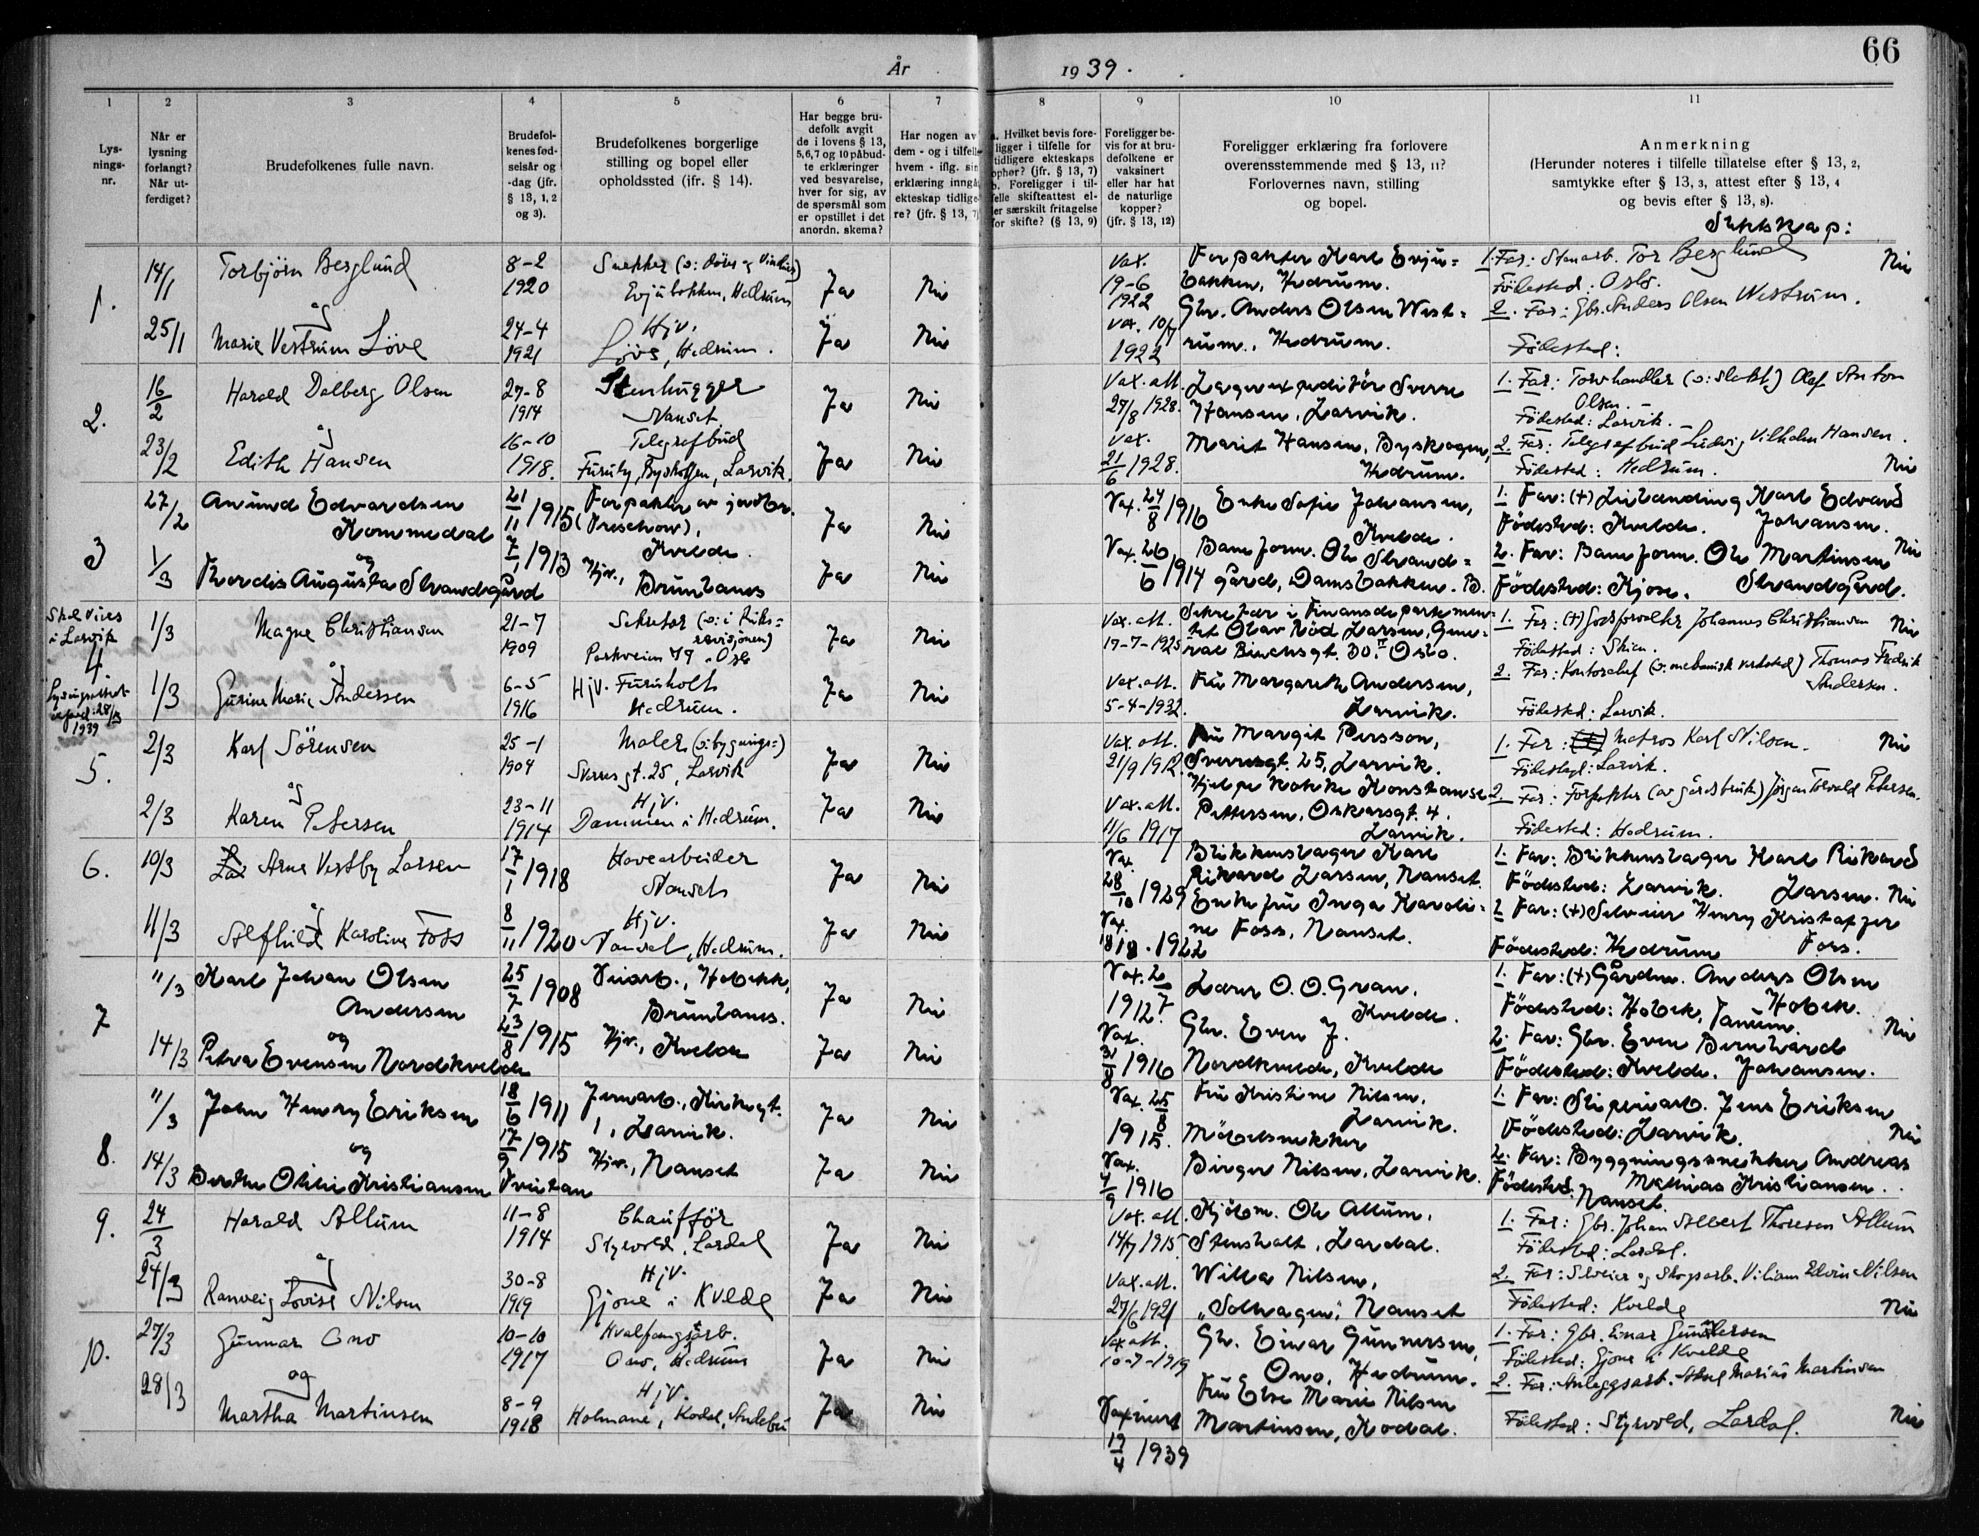 66
År 1939.
1 2 3 4 5 6 7 8 9 10 11
Lys-
nings-
nr.
Når er
lysning
forlangt?
Når ut-
ferdiget?
Brudefolkenes fulle navn.
Brudefol-
kenes fød-
selsår og
-dag (jfr.
§ 13, 1, 2
og 3).
Brudefolkenes borgerlige
stilling og bopel eller
opholdssted (ifr. § 14).
Har begge bru-
defolk avgit
de i lovens § 13,
5,6,7 og 10 påbud-
te erklæringer
ved besvarelse,
hver for sig, av
de spørsmål som
er opstillet i det
anordn. skema?
Har nogen av
dem - og i tilfelle
hvem - iflg. sin
erklæring inngå
ekteskap tidlige-
re? (jfr. § 13, 7)
a. Hvilket bevis fore-
ligger i tilfelle for
tidligere ekteskaps
ophør? (jfr. § 13, 7)
b. Foreligger i til-
felle skifteattest el-
ler særskilt fritagelse
for skifte? (§ 13, 9)
Foreligger be-
vis for at bru-
defolkene er
vaksinert
eller har hat
de naturlige
kopper?
(jfr. § 13, 12)
Foreligger erklæring fra forlovere
overensstemmende med § 13, 11?
Forlovernes navn, stilling
og bopel.
Anmerkning
(Herunder noteres i tilfelle tillatelse efter § 13, 2,
samtykke efter § 13, 3, attest efter § 13, 4
og bevis efter § 13, 8).
Slektskap:
1.
14/1 Torbjørn Berglund 8-2 1920 Snekker (o: dører og vinduer) Evjubakken, Hedrum Ja Nei
og
25/1 Marie Vestrum Löve 24-4 1921 Hjv. Löve, Hedrum. Ja Nei
Vax. 19-6 1922
Vax. 10/7 1922
Forpakter Karl Evju=
bakken, Hedrum.
Gbr. Anders Olsen West=
rum, Hedrum.
1. Far: Stenarb. Tor Berglund Nei
Födested: Oslo.
2. Far: Gbr. Anders Olsen Westrum.
Födested:
2.
16/2 Harald Dalberg Olsen 27-8 1914 Stenhugger Nanset Ja Nei
og
23/2 Edith Hansen 16-10 1918. Telegrafbud Furuly, Byskogen, Larvik. Ja Nei
Vax. att. 27/8 1928.
Vax. 21/6 1928.
Lagerexpeditör Sverre
Hansen, Larvik.
Marit Hansen, Byskogen,
Hedrum.
1. Far: Torvhandler (o: slakt.) Olaf Anton
Olsen.
Födested: Larvik.
2. Far: Telegrafbud Ludvig Vilhelm Hansen.
Födested: Hedrum. Nei
3
27/2 Anund Edvardsen
Kommedal 21/11 1915 Forpakter av jordbr.
(Treschow),
Kvelde. Ja Nei
og
1/3 Thordis Augusta Strandgård 7/1 1913 Hjv., Brunlanes Ja Nei
Vax. 24/8 1916
Vax. 26/6 1914
Enke Sofie Johansen,
Kvelde.
Baneform. Ole Strand=
gård, Damsbakken. B.
1. Far: (+) Karl Edvard
Födested: Kvelde. Johansen.
2. Far: Baneform. Ole Martinsen Nei
Födested: Kjose. Strandgård.
Skal vies
i Larvik
4
Lysingsattest
28/3
1939
1/3 Magne Christiansen 21-7 1909 Sekretær (o: i Riks=
revisjonen)
Parkveien 79 - Oslo Ja Nei
og
1/3 Gurine Marie Andersen 6-5 1916 Hjv. Furuholt
Hedrum. Ja Nei
Vax. att.
17-7-1925
Vax. att.
5-4-1932.
Sekretær i Finansdepartemen=
tet Olav Röd Larsen, Gene=
ral Birchsgt. 30 II Oslo.
Fru Margarethe Andersen,
Larvik.
1. Far: (+) Godsforvalter Johannes Christiansen Nei
Födested: Skien.
2. Far: Kontorchef (o: mekanisk verksted) Thomas Fredrik
Andersen.
Födested: Larvik.
5.
2/3 Karl Sörensen 25-1 1904 Maler (o: bygnings=)
Sverres gt. 25, Larvik Ja Nei
og
2/3 Karen Petersen 23-11 1914 Hjv.
Dammen i Hedrum. Ja Nei
Vax. att.
21/9 1912.
Vax. att.
11/6 1917
Fru Margit Persson,
Sverresgt. 25, Larvik.
Hjelpekokke Konstanse
Pettersen, Oskarsgt. 4.
Larvik.
1. Far: Matros Karl Nilsen. Nei
Födested: Larvik.
2. Far: Forpakter (av gårdsbruk) Jörgen Torvald Petersen.
Födested: Hedrum.
6.
10/3 Arne Vestby Larsen 17/1 1918 Havearbeider
Nanset Ja Nei
og
11/3 Alfhild Karoline Foss 8/11 1920 Hjv.
Nanset, Hedrum. Ja Nei
Vax. 28/10 1929
Vax. 18/8. 1922
Blikkenslager Karl
Rikard Larsen, Nanset.
Enkefru Inga Karoli=
ne Foss, Nanset.
1. Far: Blikkenslager Karl Rikard
Födested: Larvik. Larsen. Nei
2 Far: (+) Selveier Henry Kristoffer
Födested: Hedrum Foss.
7
11/3 Karl Johan Olsen
Andersen 25/7 1908 Veiarb., Hobekk,
Brunlanes. Ja Nei
og
14/3 Petra Evensen Nordkvelde 23/8 1915 Hjv., Kvelde Ja Nei
Vax. 2/7
1912.
Vax.
31/8 1916
Lærer O. O. Gran,
Kvelde.
Gbr. Even J.
Nordkvelde, Kvelde
1. Far: (+) Gårdbr. Anders Olsen
Födested: Hobek, Tanum. Hobek. Nei
2. Far: Gbr. Even Bernhard
Födested: Kvelde. Johansen.
8.
11/3 John Henry Eriksen 18/6 1911 Jernarb., Kirkegt.
1, Larvik. Ja Nei
og
14/3 Berthe Otilie Kristiansen 17/9 1915 Hjv., Nanset Ja Nei
Vax. 25/8
1915.
Vax.
4/9 1916
Fru Kristine Nilsen,
Larvik.
Möbelsnekker
Birger Nilsen, Larvik.
1. Far: Sliperiarb. Jens Eriksen
Födested: Larvik. Nei
2. Far: Byggningssnekker Andreas
Födested: Mathias Kristiansen.
Nanset.
9.
24/3 Harald Allum 11-8 1914 Chaufför
Styrvold, Lardal Ja Nei
og
24/3 Ranveig Lovise Nilsen 30-8 1919 Hjv.
Gjone i Kvelde Ja Nei
Vax. att.
14/7 1915
Vax. att.
27/6 1921
Kjöbm. Ole Allum,
Stensholt, Lardal.
Wilka Nilsen,
"Solhagen", Nanset
1. Far: Gbr. Johan Albert Thoresen Allum
Födested: Lardal.
2. Far: Selveier og Skogsarb. Viliam Edvin Nilsen
Födested: Kvelde Nei
10.
27/3 Gunnar Ono 10-10 1917 Hvalfangstarb.
Ono, Hedrum Ja Nei
og
28/3 Martha Martinsen 8-9 1918 Hjv.
Holmane, Kodal, Andebu Ja Nei
Vax att.
10-7-1919
Vaxinert
19/4 1939
Gbr. Einar Gunnersen,
Ono, Hedrum.
Fru Else Marie Nilsen
Martinsen, Kodal.
1. Far: Gbr. Einar Gundersen
Födested: Gjone i Kvelde
2. Far: Anleggsarb. Aksel Marius Martinsen
Födested: Styrvold, Lardal. Nei